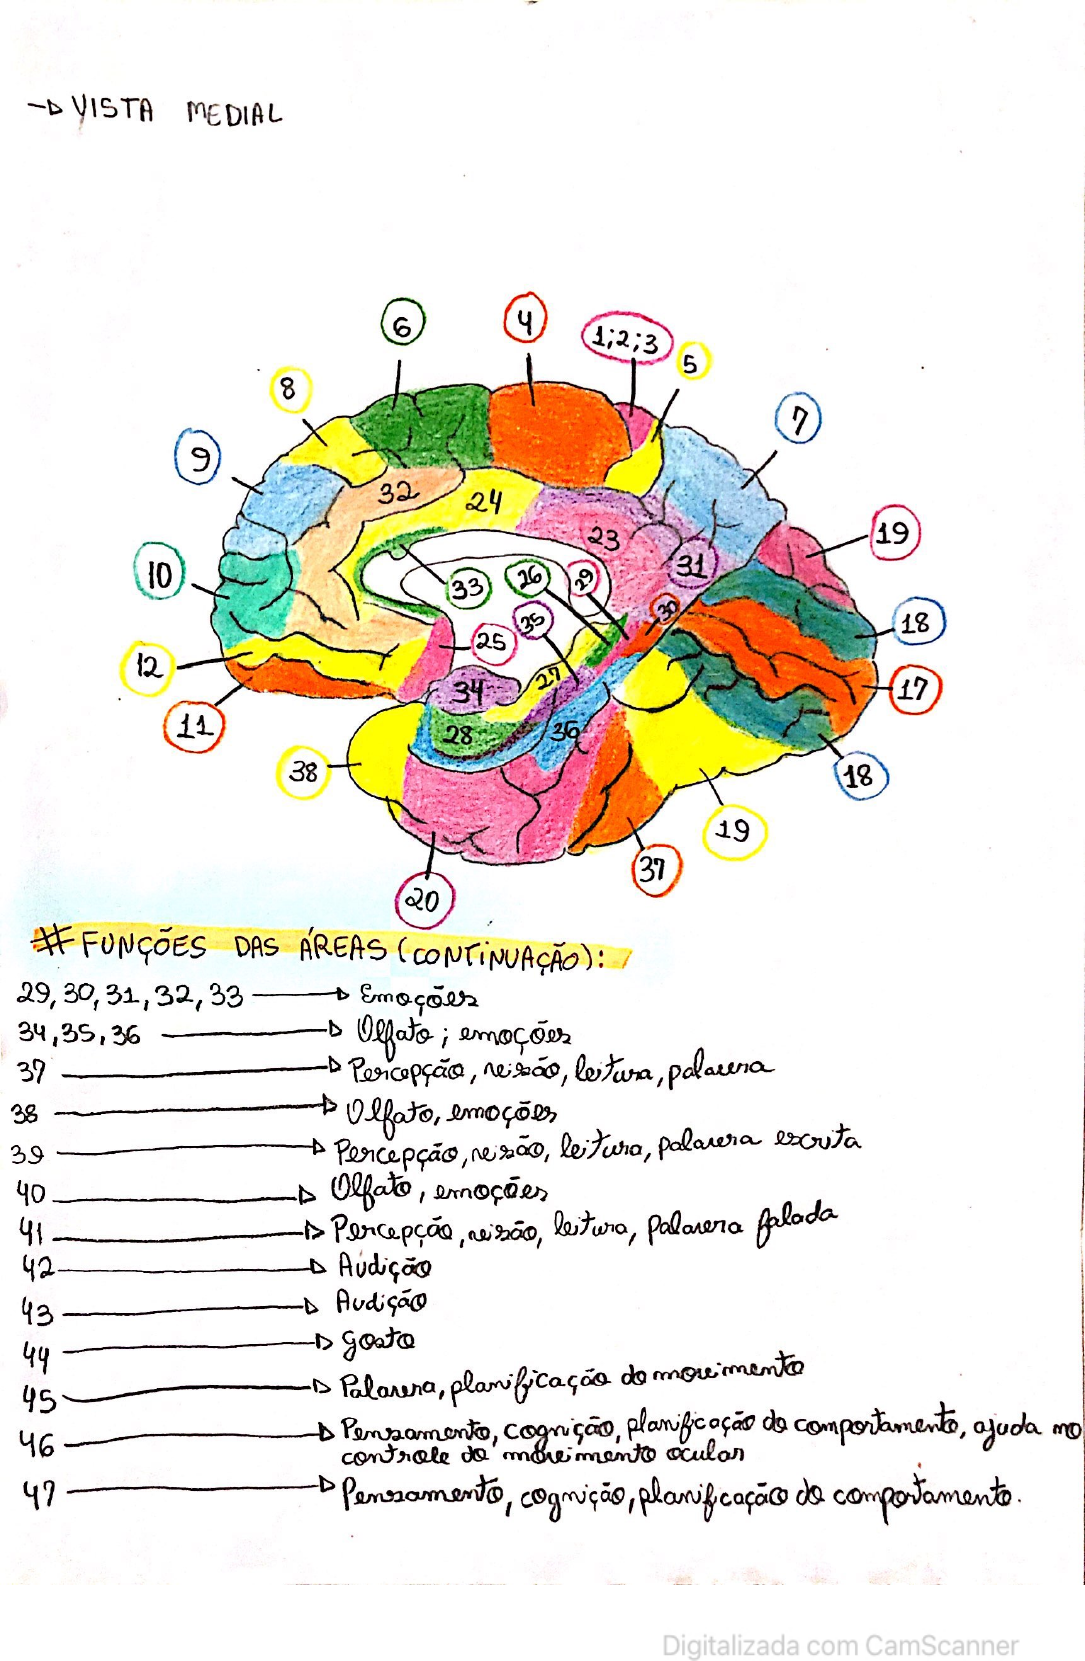 → VISTA MEDIAL
6
4
1;2;3
5
8
7
9
32
24
19
23
31
10
33
26
29
30
18
35
25
12
27
17
34
11
28
36
38
18
19
37
20
# FUNÇÕES DAS ÁREAS (CONTINUAÇÃO):
29, 30, 31, 32, 33 → Emoções
34, 35, 36 → Olfato ; emoções
37 → Percepção, visão, leitura, palavra
38 → Olfato, emoções
39 → Percepção, visão, leitura, palavra escrita
40 → Olfato, emoções
41 → Percepção, visão, leitura, palavra falada
42 → Audição
43 → Audição
44 → Gosto
45 → Palavra, planificação do movimento
46 → Pensamento, cognição, planificação do comportamento, ajuda no
controle do movimento ocular
47 → Pensamento, cognição, planificação do comportamento.
Digitalizada com CamScanner